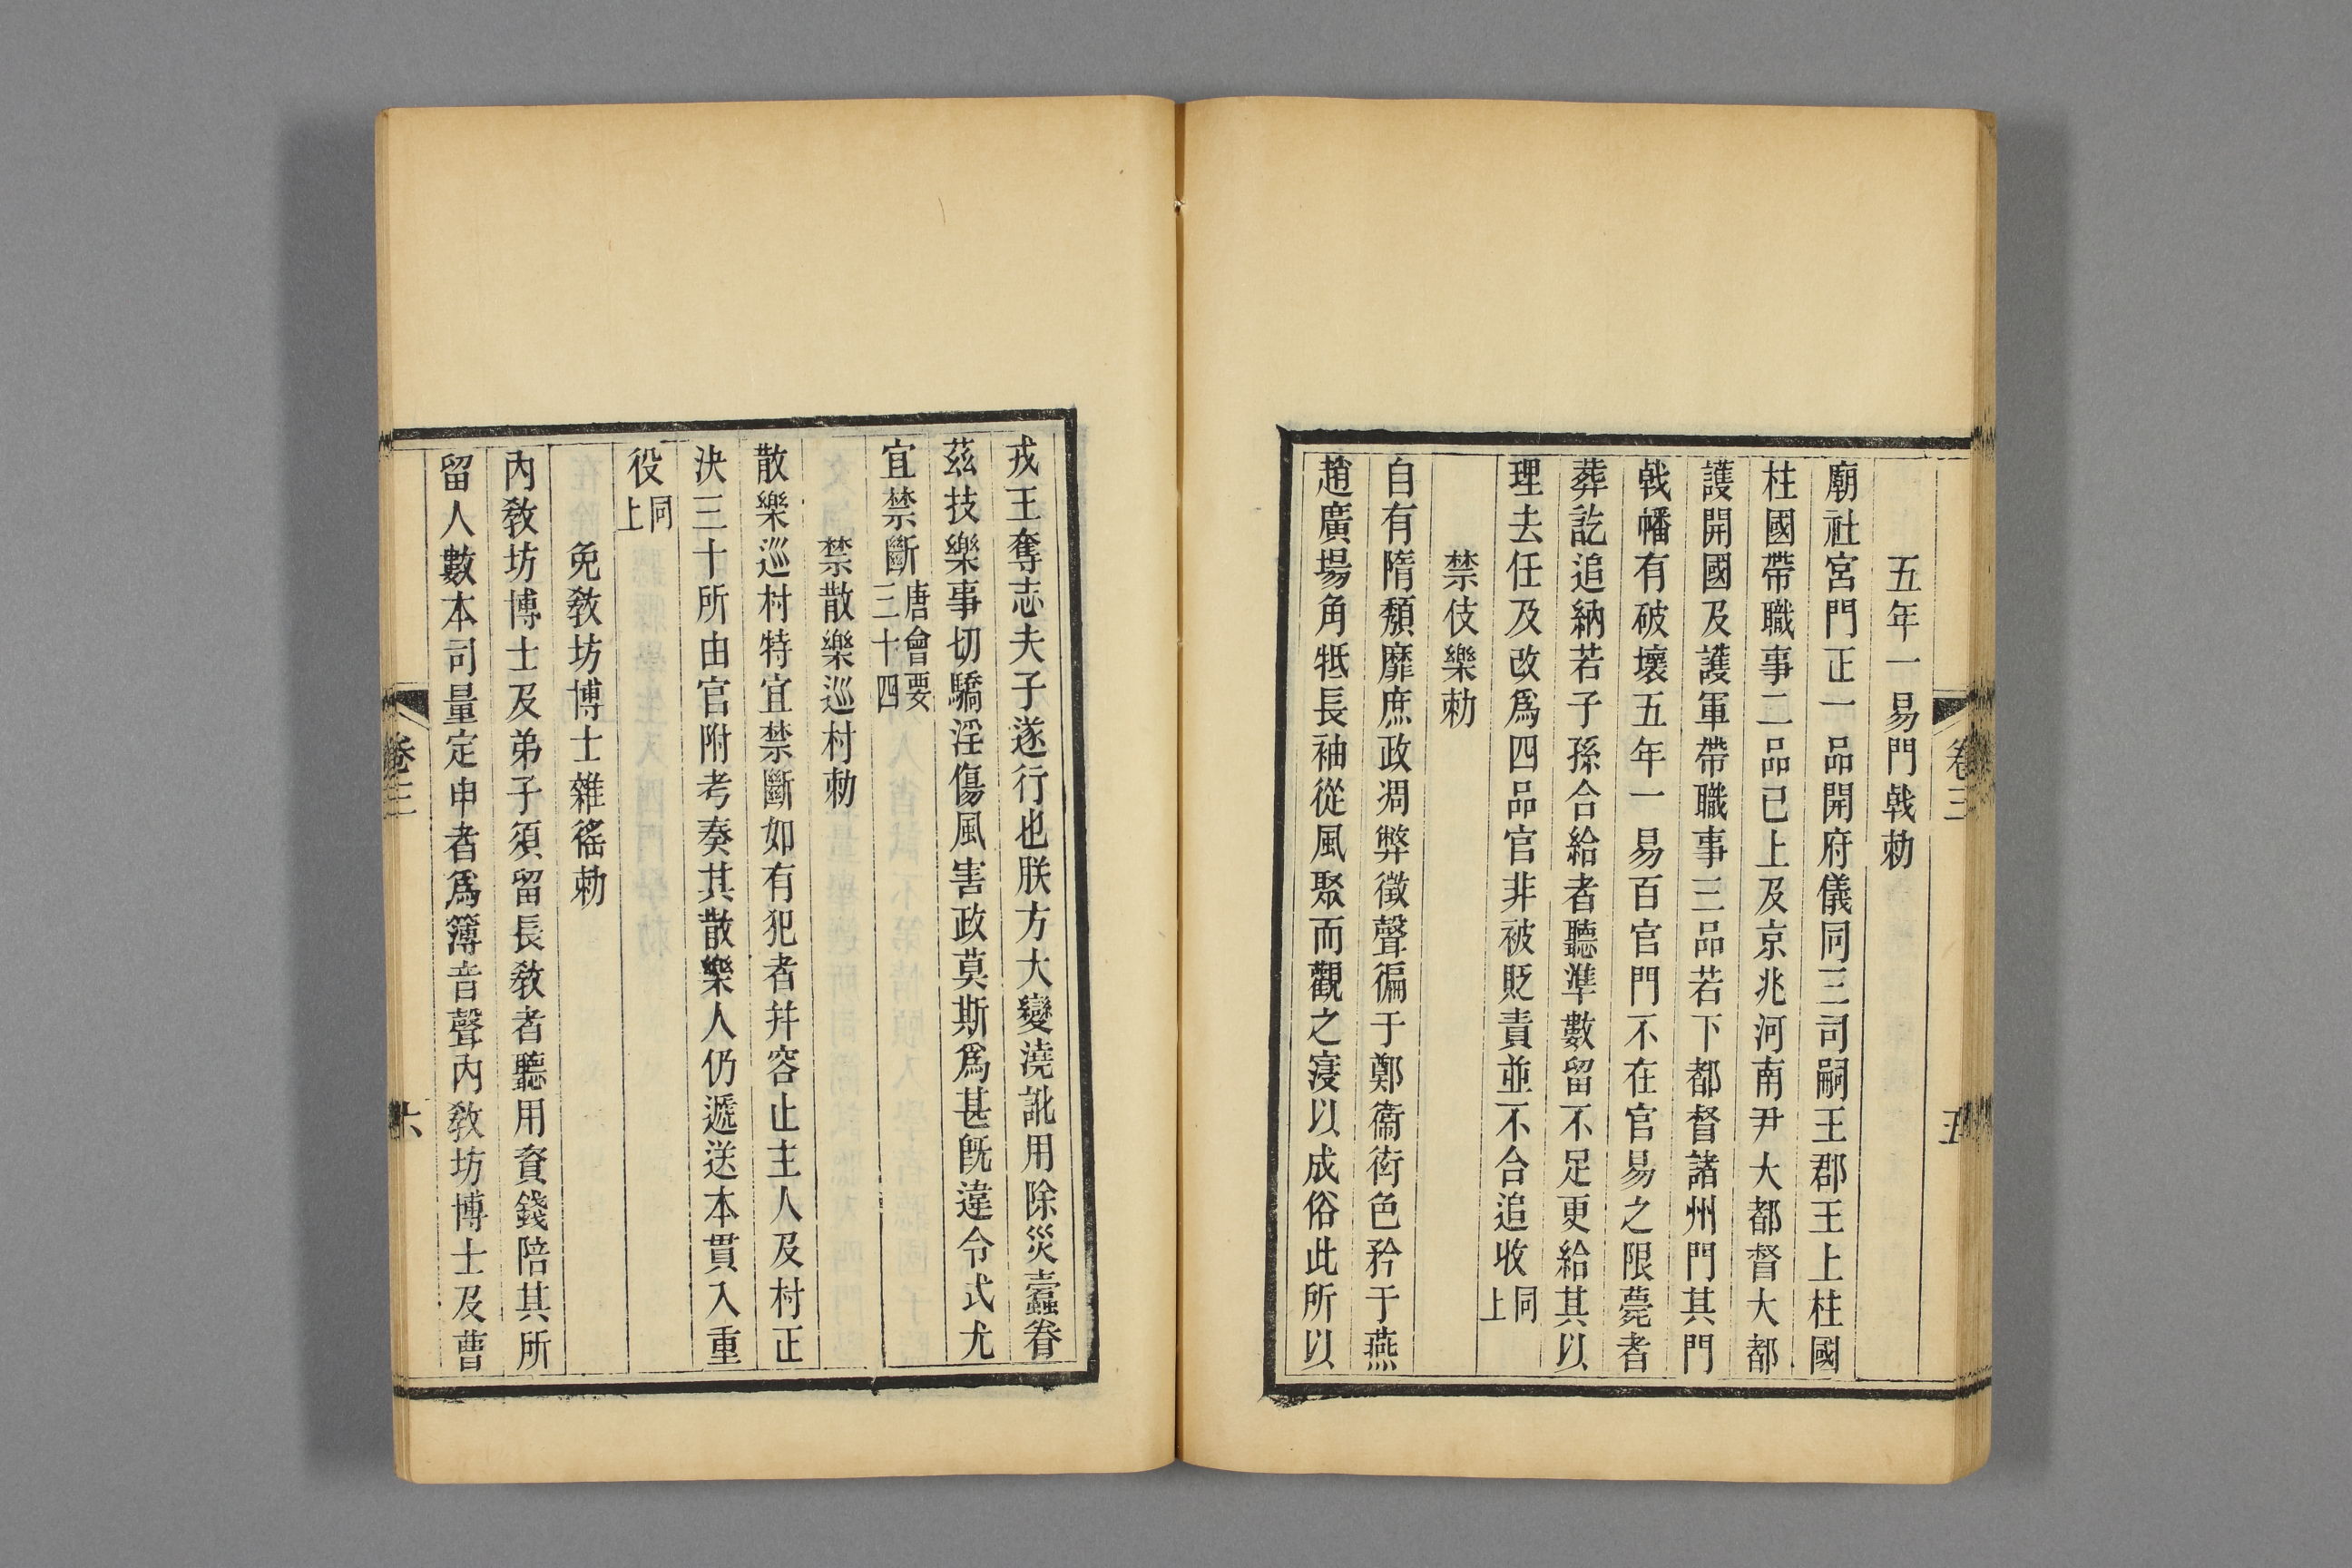 五年一易門戟勅
廟社宮門正一品開府儀同三司嗣王郡王上柱國
柱國帶職事二品已上及京兆河南尹大都督大都
護開國及護軍帶職事三品若下都督諸州門其門
戟幡有破壞五年一易百官門不在官易之限薨者
葬訖追納若子孫合給者聽準數留不足更給其以
理去任及改爲四品官非被貶責並不合追收同上
禁伎樂勅
自有隋頹靡庶政凋弊徵聲徧于鄭衞衒色矜于燕
趙廣場角牴長袖從風聚而觀之寖以成俗此所以
卷三
五
戎王奪志夫子遂行也朕方大變澆訛用除災蠹眷
茲技樂事切驕淫傷風害政莫斯爲甚旣違令式尤
宜禁斷唐會要三十四
禁散樂巡村勅
散樂巡村特宜禁斷如有犯者幷容止主人及村正
決三十所由官附考奏其散樂人仍遞送本貫入重
役同上
免敎坊博士雜徭勅
內敎坊博士及弟子須留長敎者聽用資錢陪其所
留人數本司量定申者爲簿音聲內敎坊博士及曹
卷三
六